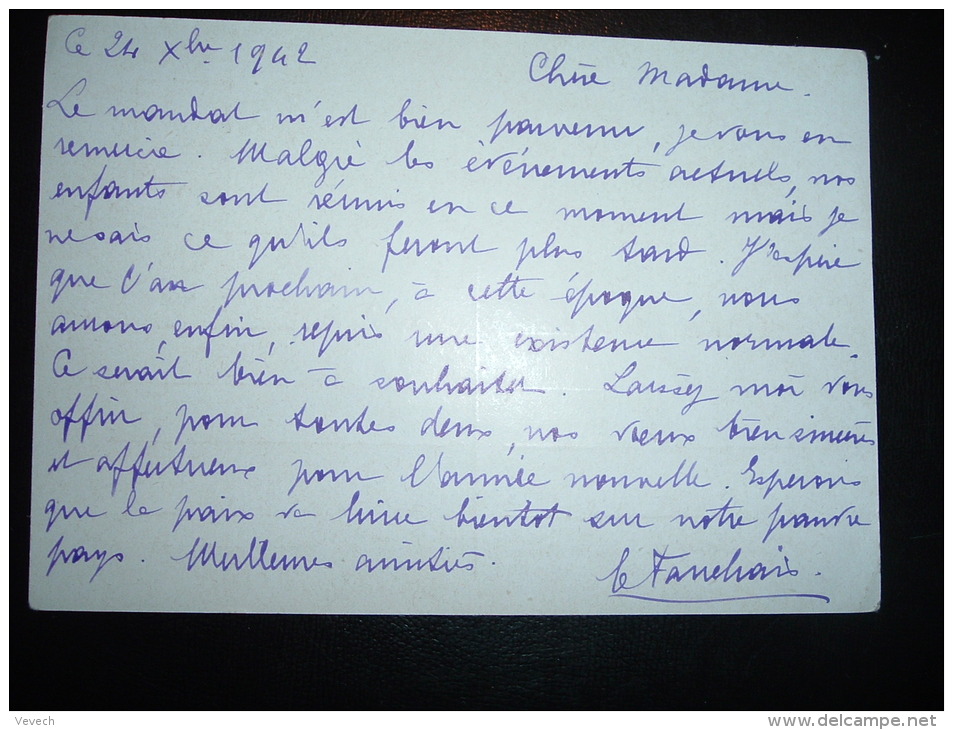 Ce 24 Xbre 1942
Chère Madame.
Le mandat m'est bien parvenu, je vous en
remercie. Malgré les événements actuels, nos
enfants sont réunis en ce moment mais je
ne sais ce qu'ils feront plus tard. J'espère
que l'an prochain, à cette époque, nous
aurons, enfin, repris une existence normale.
Ce serait bien à souhaiter. Laissez moi vous
offrir, pour toutes deux, nos voeux bien sincères
et affectueux pour l'année nouvelle. Espérons
que la paix va luire bientôt sur notre pauvre
pays. Meilleures amitiés.
Vevech
www.delcampe.net